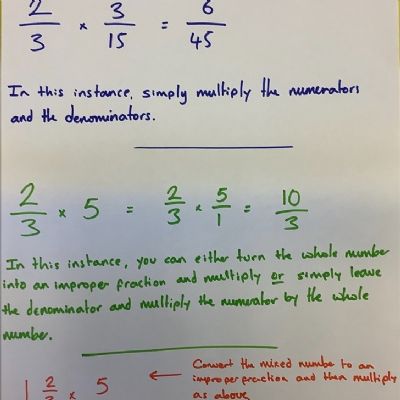 2/3 × 3/15 = 6/45
In this instance, simply multiply the numerators
and the denominators.
2/3 × 5 = 2/3 × 5/1 = 10/3
In this instance, you can either turn the whole number
into an improper fraction and multiply or simply leave
the denominator and multiply the numerator by the whole
number.
Convert the mixed number to an
1 2/3 × 5 ← improper fraction and then multiply
as above.